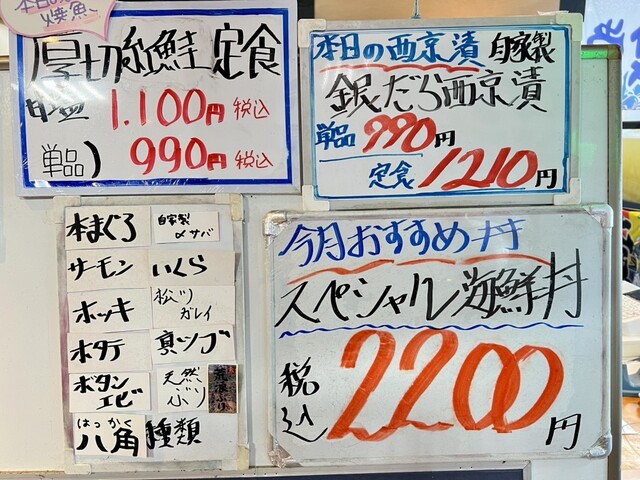 本日の
焼魚
厚切紅鮭定食
1.100円税込
単品)990円税込
本日の西京漬 自家製
銀だら西京漬
単品990円
定食1210円
本まぐろ
自家製
〆サバ
サーモン
いくら
ホッキ
松ツ
ガレイ
ホタテ
真ツブ
ボタン
エビ
天然
ぶり
はっかく
八角
種類
今月おすすめ丼
スペシャル海鮮丼
税込
2200円